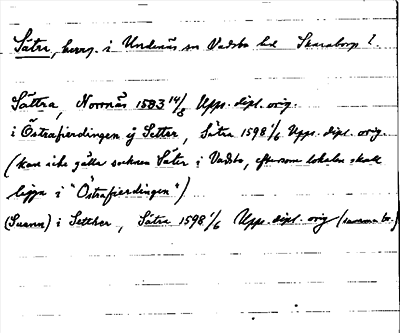 Sätra, herrg. i Undenäs sn Vadsbo hd Skaraborgs l.
Sättra, Norrnäs 1583 14/8 Upps. dipl. orig.
i Östrafierdingen ÿ Setter, Sätra 1598 1/6 Upps. dipl. orig.
(kan icke gälla socknen Säter i Vadsbo, eftersom lokalen skall
ligga i "Östrafierdingen")
(Suann) i Setther, Sätra 1598 1/6 Upps. dipl. orig (samma br.)